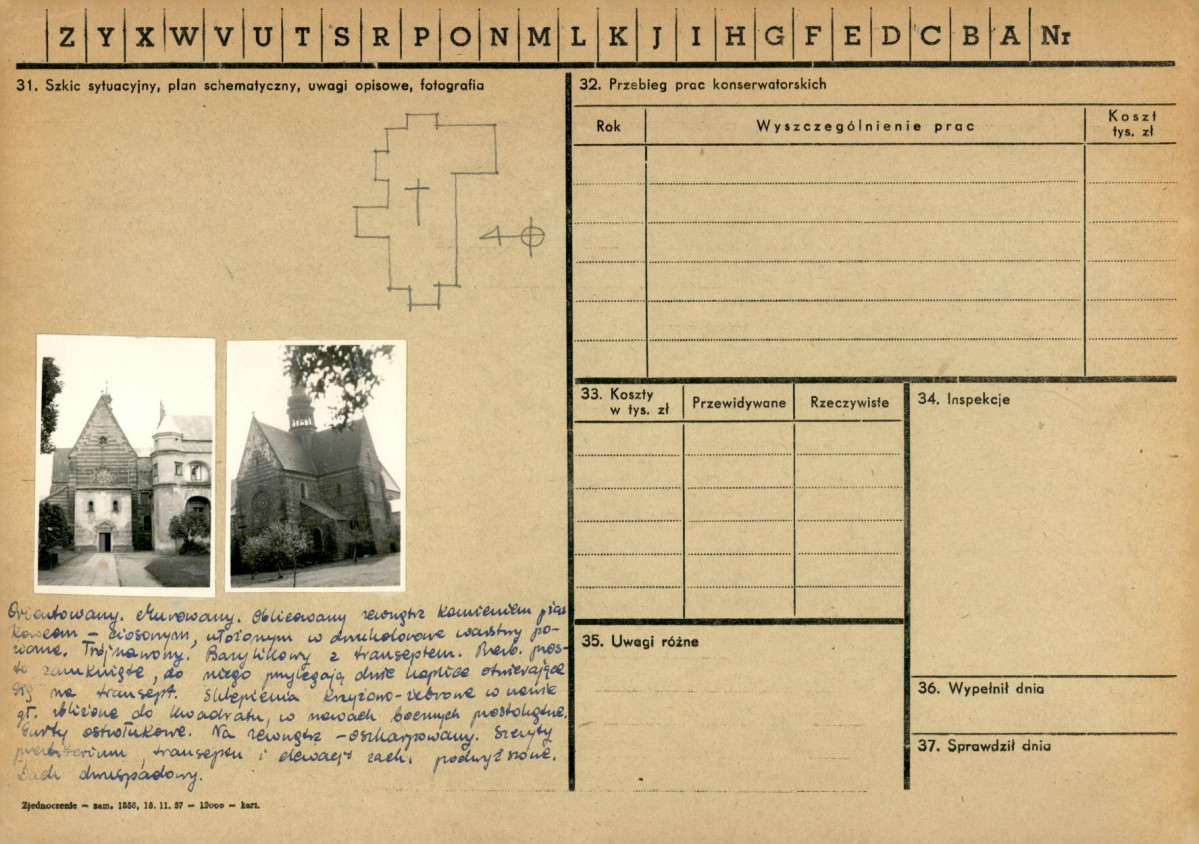 Z Y X W V U T S R P O N M L K J I H G F E D C B A Nr
31. Szkic sytuacyjny, plan schematyczny, uwagi opisowe, fotografia
Orientowany. Murowany. Oblicowany zewnątrz kamieniem pias
kowcem – ciosonym, ułożonym w dwukolorowe warstwy po-
ziome. Trójnawowy. Bazylikowy z transeptem. Prezb. pros-
to zamknięte, do niego przylegają dwie kaplice otwierające
się na transept. Sklepienia krzyżowo-żebrowe w nawie
gł. zbliżone do kwadratu, w nawach bocznych prostokątne.
Gurty ostrołukowe. Na zewnątrz – oszkarpowany. Szczyty
prezbiterium, transeptu i elewacji zach. podwyższone.
Dach dwuspadowy.
Zjednoczenie – zam. 1858, 15. 11. 57 – 12000 – kart.
32. Przebieg prac konserwatorskich
Rok
Wyszczególnienie prac
Koszt
tys. zł
33. Koszty
w tys. zł
Przewidywane
Rzeczywiste
34. Inspekcje
35. Uwagi różne
36. Wypełnił dnia
37. Sprawdził dnia